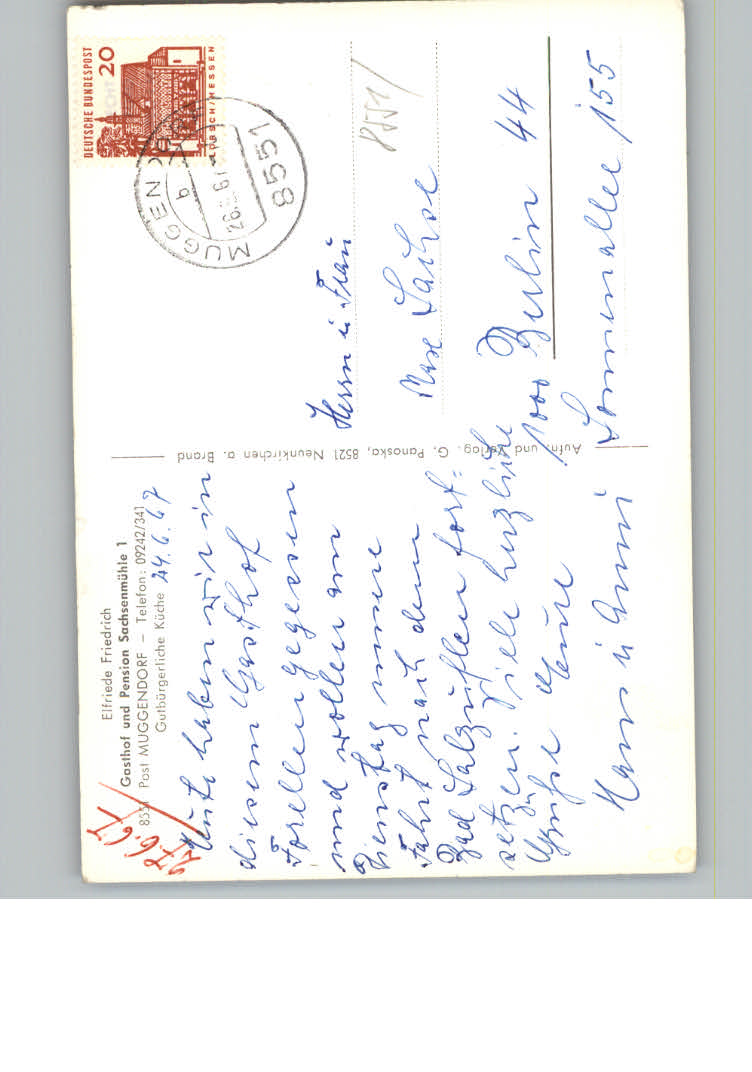 Elfriede Friedrich
Gasthof und Pension Sachsenmühle 1
8551 Post MUGGENDORF – Telefon: 09242/341
Gutbürgerliche Küche
24.6.67
27.6.67
Heute haben wir in
diesem Gasthof
Forellen gegessen
und wollen am
Dienstag unsere
Fahrt nach dem
Bad Salzuflen fort-
setzen. Viele herzliche
Grüße Eure
Hans u Anni
Aufn. und Verlag: G. Panoska, 8521 Neunkirchen a. Brand
DEUTSCHE BUNDESPOST
20
LORSCH/HESSEN
MUGGENDORF
b
8551
8551/
Herrn u Frau
Max
1000 Berlin 44
Sonnenallee 155